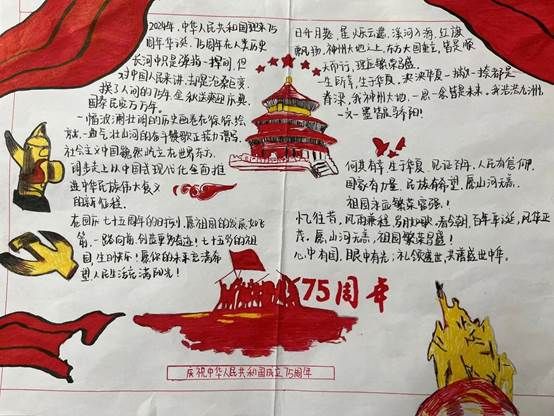 2024年,中华人民共和国迎来75
周年华诞,75周年在人类历史
长河中只是弹指一挥间,但
对中国人民来讲,却是沧桑巨变,
换了人间的75年,全秋送爽迎庆典,
国泰民安万万年。
一幅波澜壮阔的历史画卷在徐徐
一曲气壮山河的奋斗赞歌正在
社会主义中国巍然屹立在世界东方,
阔步走上以中国式现代化全面推
进中华民族伟大复兴
的新征程。
在国庆七十五周年的日子里,愿祖国的发展如飞
箭,一路向前,创造更多奇迹!七十五岁的祖
国,生日快乐!愿你的未来充满希望
人民生活充满阳光!
日升月恒,星烁云蒸,溪河入海,红旗
飘扬,神州大地之上,东方大国
一生所幸,生于华夏,泱泱华夏,一城一捡都是
脊梁,我神州大地,一思一条皆是未来。我茫茫九州,
一文一墨皆是骄阳!
何其有幸,生于华夏,见证百年,人民有信仰,
国家有力量,民族有希望,愿山河无恙,
祖国永亚繁荣富强!
忆往昔,风雨兼程,岁月如歌,看今朝,百年华诞,风华正
茂,愿山河无恙,祖国繁荣昌盛!
心中有国,眼中有光,礼敬盛世,共谱盛世中华。
75周年
庆祝中华人民共和国成立75周年